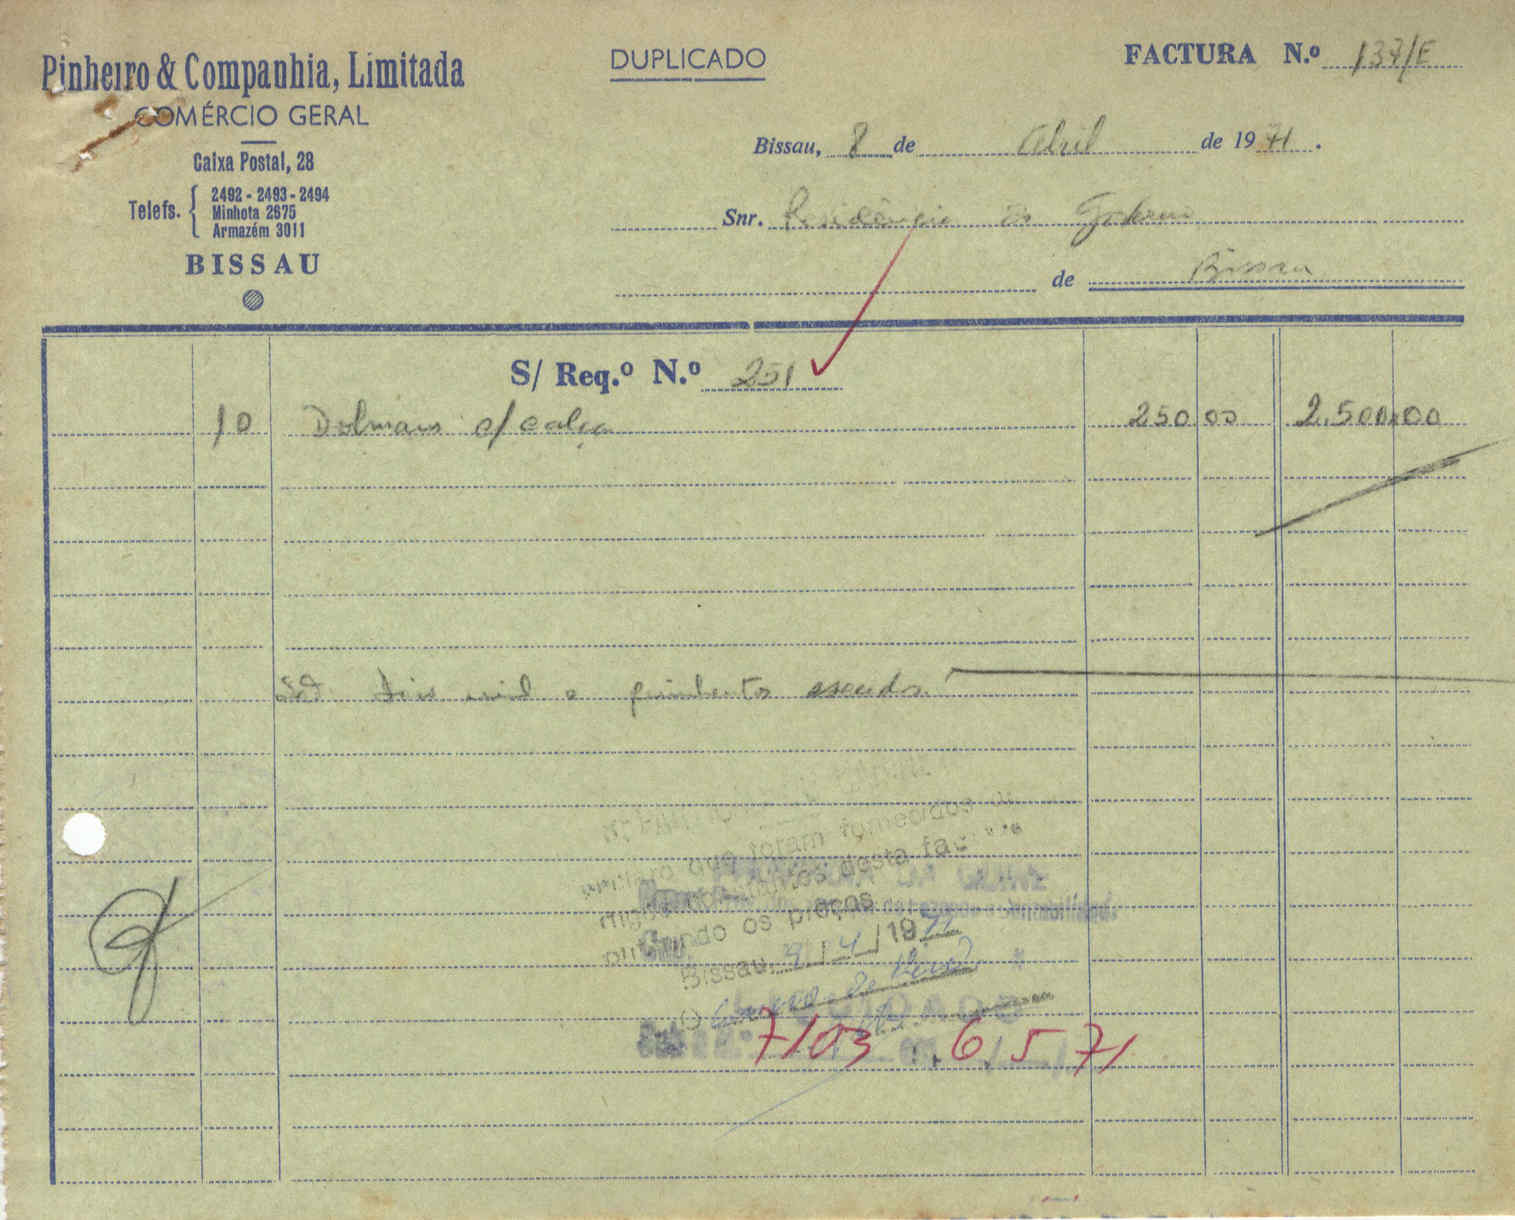 Pinheiro & Companhia, Limitada
COMÉRCIO GERAL
Caixa Postal, 28
Telefs. 2492 - 2493 - 2494
Minhota 2675
Armazém 3011
BISSAU
DUPLICADO
FACTURA N.º 137/E
Bissau, 8 de Abril de 1971.
Snr. Residência do Governo
de Bissau
S/ Req.º N.º 251
10 Dolmans c/ calça 250,00 2.500,00
dois mil e quinhentos escudos
que foram fornecidos
desta
os preços
Bissau, 9/4/1971
O
7103 6/5/71